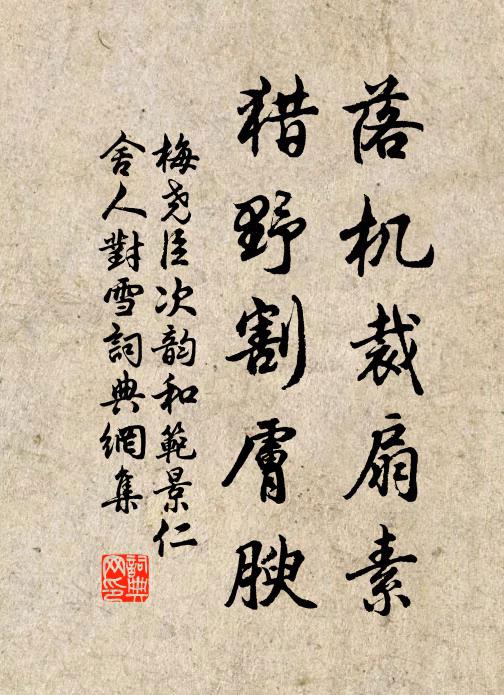 落机裁扇素
猎野割膚腴
梅尧臣次韵和範景仁
舍人對雪詞典網集
詞典网印